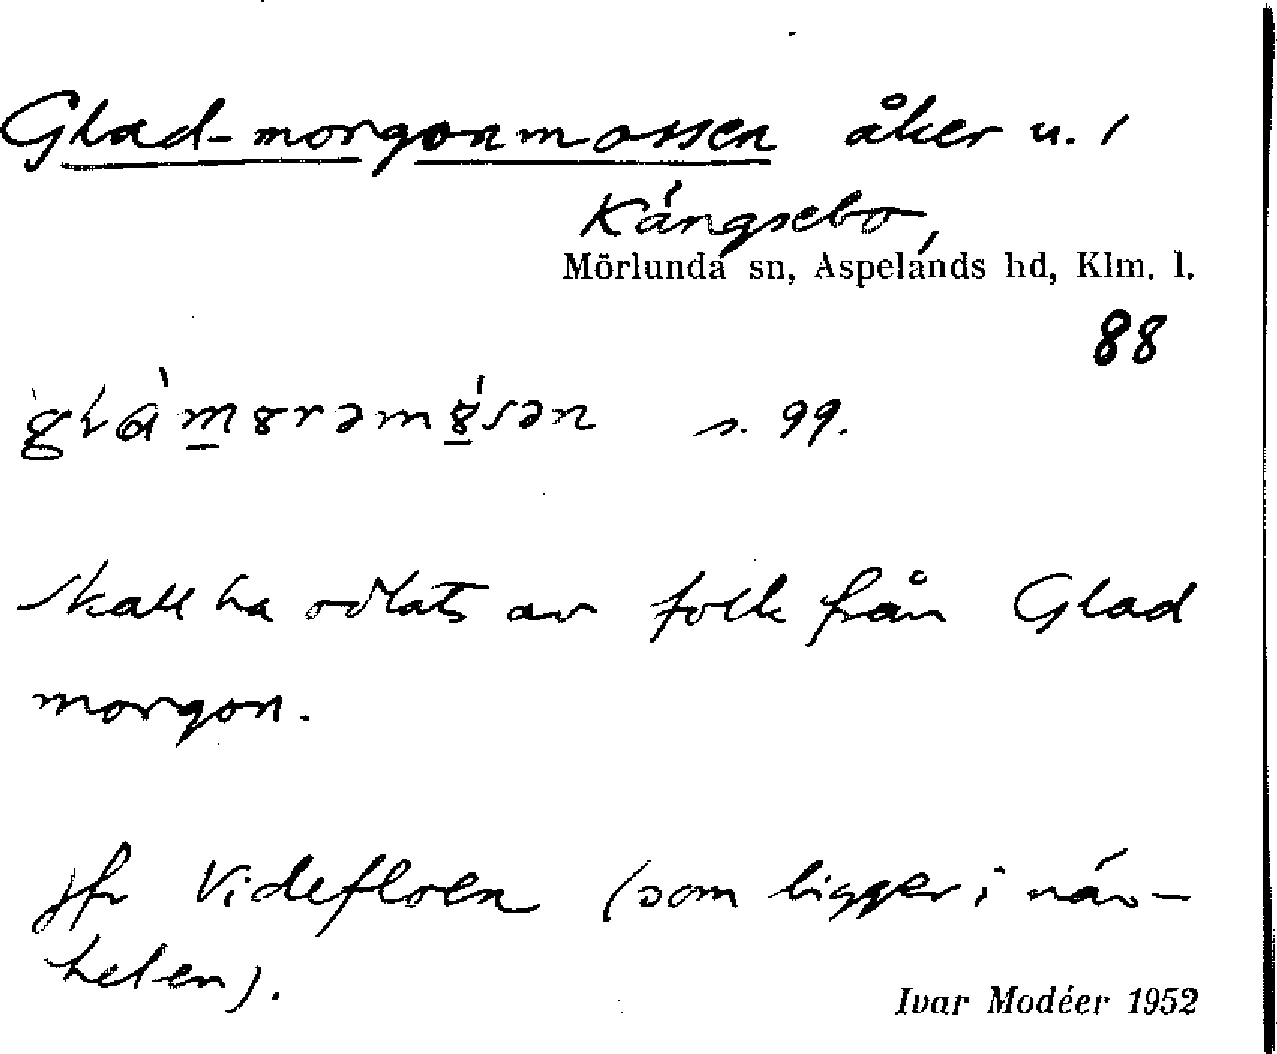 Glad-morgonmossen åker u. /
Kängsebo,
Mörlunda sn, Aspelands hd, Klm. l.
88
s. 99.
skall ha odlats av folk från Glad
morgon.
jfr Videfloen (som ligger i när-
heten).
Ivar Modéer 1952